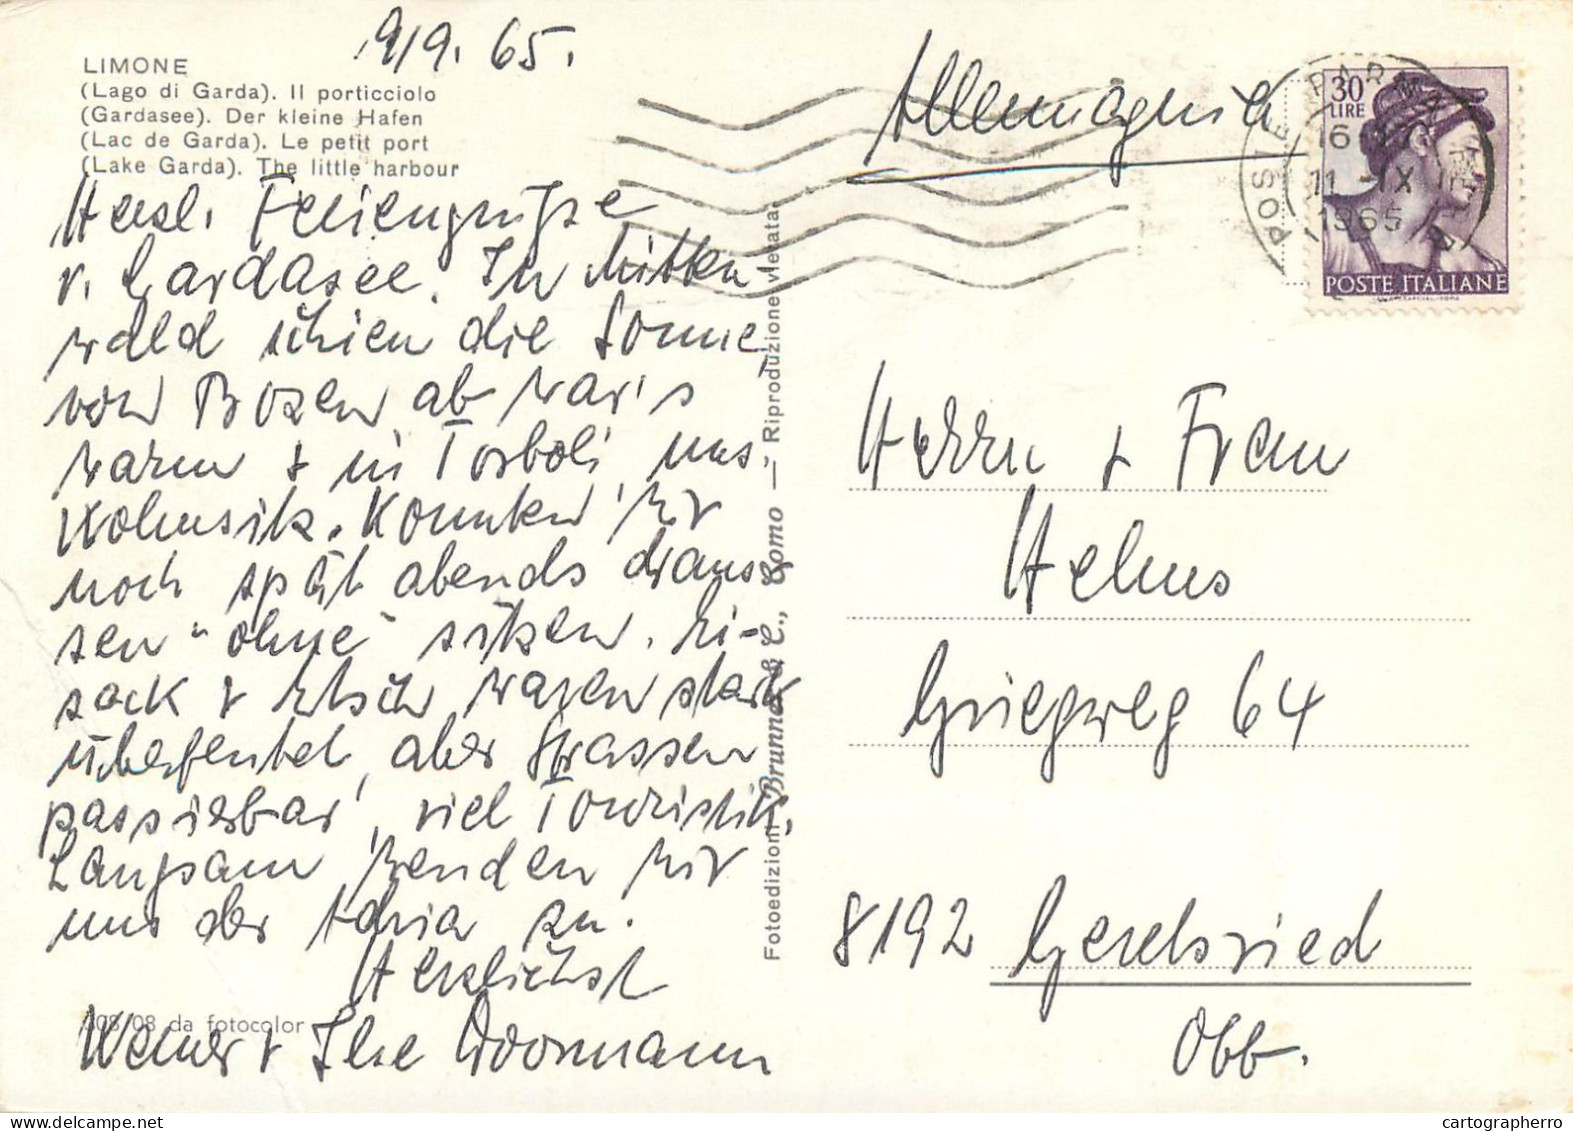 9/9. 65.
LIMONE
(Lago di Garda). Il porticciolo
(Gardasee). Der kleine Hafen
(Lac de Garda). Le petit port
(Lake Garda). The little harbour
Herzl. Feriengrüsse
v. Gardasee. In Mitten-
wald schien die Sonne,
von Bozen ab war's
warm & in Torboli, uns.
Wohnsitz. Konnten wir
noch spät abends draus-
sen "ohne" sitzen. Ei-
sack & Etsch waren stark
überflutet, aber Strassen
passierbar, viel Touristik.
Langsam wenden wir
uns der Adria zu.
Herzlichst
Werner & Ilse Doormann
308/08 da fotocolor
Fotoedizioni Brunner & C., Como — Riproduzione vietata
Allemagnia
30
LIRE
POSTE ITALIANE
POSTE PARMA
16
11 - IX
1965
Herrn & Frau
Helms
Griegweg 64
8192 Geretsried
Obb.
cartographerro